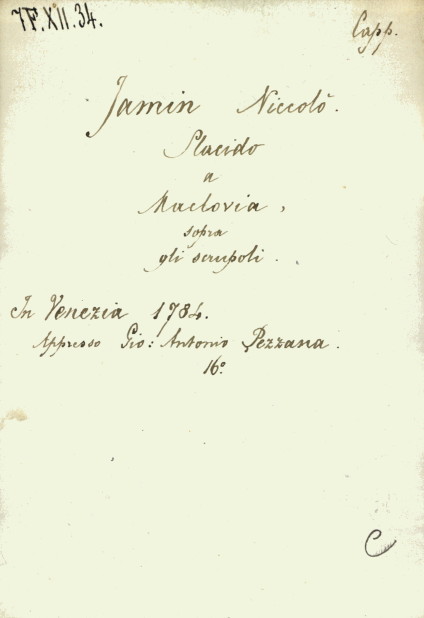 7F.XII.34.
Capp.
Jamin Niccolò.
Placido
a
Maclovia,
sopra
gli scrupoli.
In Venezia 1784.
Appresso Gio: Antonio Pezzana.
16º
C